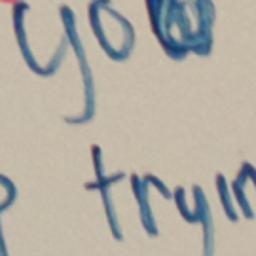 yo
tryin